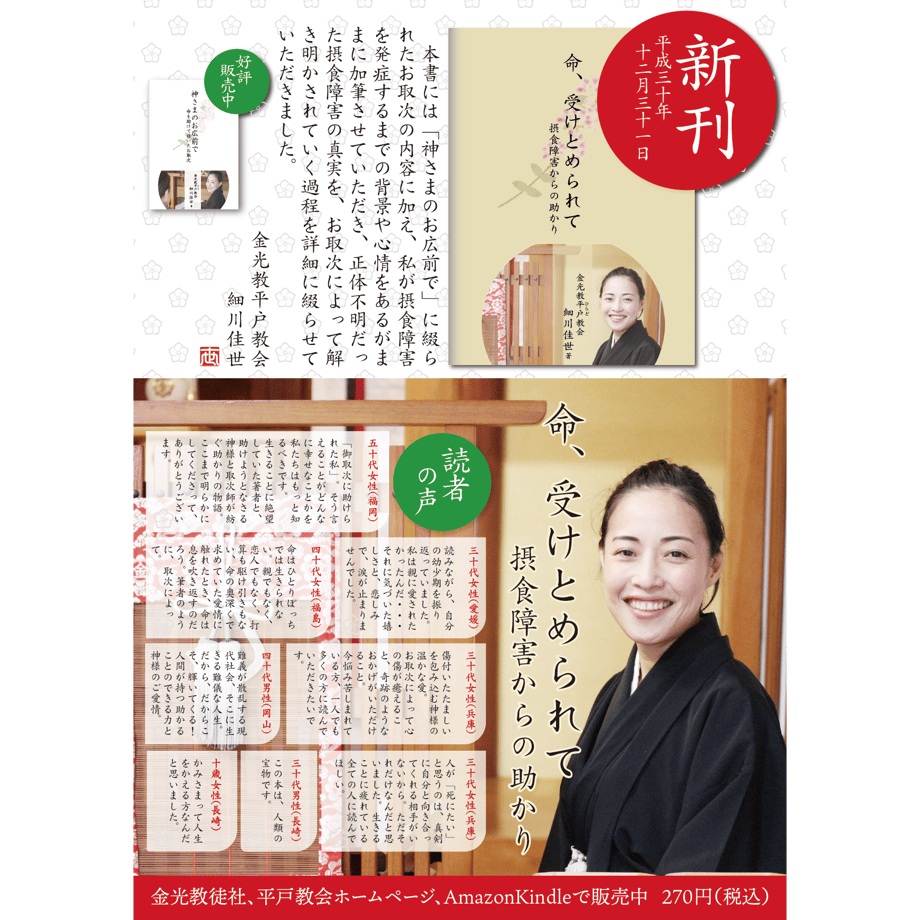 新刊
平成三十年
十二月三十一日
命、受けとめられて
摂食障害からの助かり
金光教平戸教会
ひらど
細川佳世 著
本書には「神さまのお広前で」に綴ら
れたお取次の内容に加え、私が摂食障害
を発症するまでの背景や心情をあるがま
まに加筆させていただき、正体不明だっ
た摂食障害の真実を、お取次によって解
き明かされていく過程を詳細に綴らせて
いただきました。
金光教平戸教会
細川佳世
好評
販売中
神さまのお広前で
命、受けとめられて
摂食障害からの助かり
読者
の声
五十代女性(福岡)
「御取次に助けら
れた私」。そう言
えることがどんな
に幸せなことかを
私たちはもっと知
るべきです。
生きることに絶望
していた著者と、
助けようとなさる
神様と取次師が紡
ぐ助かりの物語。
ここまで明らかに
してくださって、
ありがとうござい
ます。
三十代女性(愛媛)
読みながら、自分
の幼少期を振り
返っていました。
私は親に愛された
かったんだ・・・
それに気づいた嬉
しさと、悲しみ
で、涙が止まりま
せんでした。
四十代女性(福島)
命はひとりぼっち
では生きられな
い。親でもなく、
恋人でもなく、打
算も駆け引きもな
い、命の奥深くで
求めていた愛情に
触れたとき、命は
息を吹き返すのだ
ろう。筆者のよう
に、取次によっ
て。
三十代女性(兵庫)
傷付いたたましい
を包み込む神様の
温かな愛。
お取次によって心
の傷が癒えるこ
と、奇跡のような
おかげがいただけ
ること。
今悩み苦しまれて
いる方、一人でも
多くの方に読んで
いただきたいで
す。
四十代男性(岡山)
難義が散乱する現
代社会、そこに生
きる難儀な人生。
だから、だからこ
そ、輝いてくる!
人間が持つ助かる
ことのできる力と
神様のご愛情。
三十代女性(兵庫)
人が「死にたい」
と思うのは、真剣
に自分と向き合っ
てくれる相手がい
ないから。ただそ
れだけなんだと思
いました。生きる
ことに疲れている
全ての人に読んで
ほしい。
三十代男性(長崎)
この本は、人類の
宝物です。
十歳女性(長崎)
かみさまって人生
をかえる方なんだ
と思いました。
金光教徒社、平戸教会ホームページ、AmazonKindleで販売中 270円(税込)